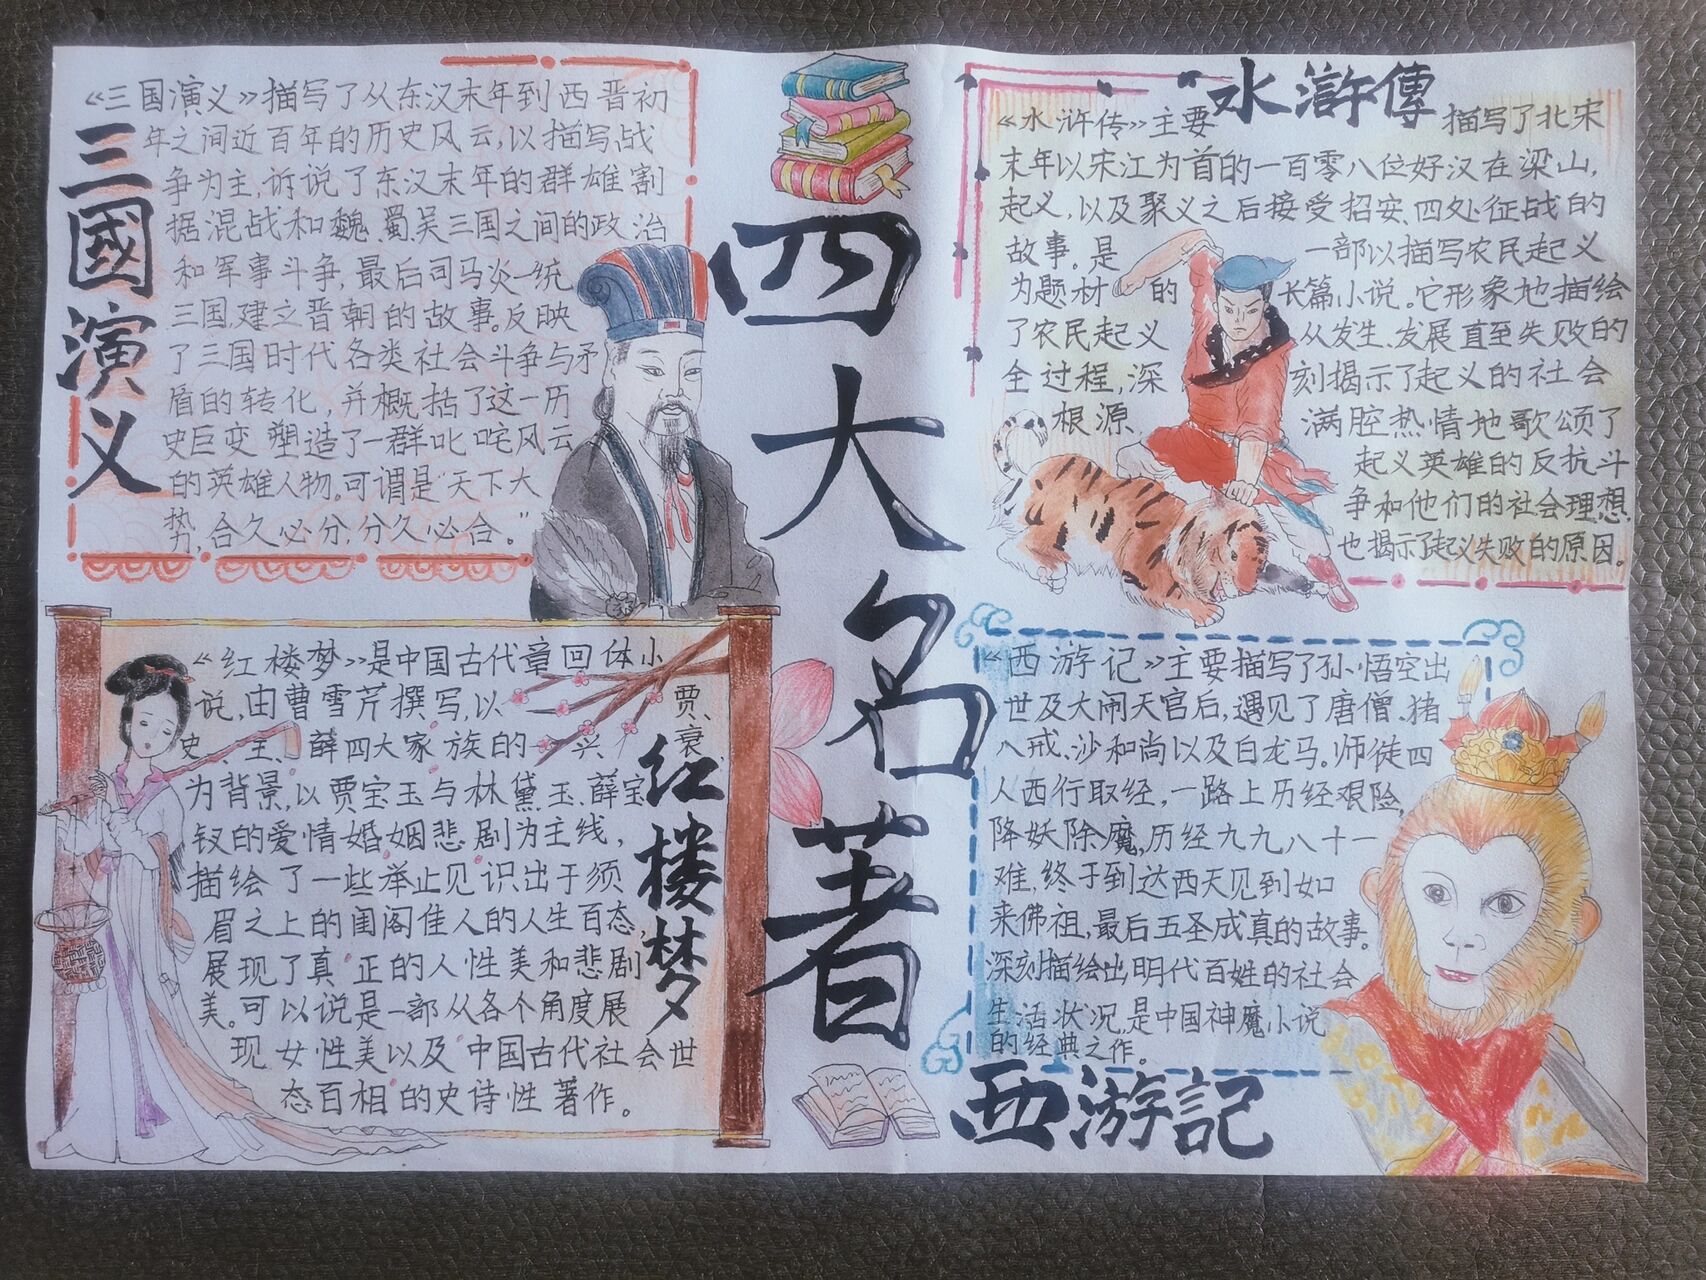 四大名著
三國演义
《三国演义》描写了从东汉末年到西晋初
年之间近百年的历史风云,以描写战
争为主,诉说了东汉末年的群雄割
据混战和魏、蜀、吴三国之间的政治
和军事斗争,最后司马炎一统
三国,建立晋朝的故事。反映
了三国时代各类社会斗争与矛
盾的转化,并概括了这一历
史巨变,塑造了一群叱咤风云
的英雄人物。可谓是“天下大
势,合久必分,分久必合。”
水滸傳
《水浒传》主要描写了北宋
末年以宋江为首的一百零八位好汉在梁山,
起义,以及聚义之后接受招安、四处征战的
故事。是一部以描写农民起义
为题材的长篇小说。它形象地描绘
了农民起义从发生、发展直至失败的
全过程,深刻揭示了起义的社会
根源,满腔热情地歌颂了
起义英雄的反抗斗
争和他们的社会理想,
也揭示了起义失败的原因。
红楼梦
《红楼梦》是中国古代章回体小
说,由曹雪芹撰写,以贾、
史、王、薛四大家族的兴衰
为背景,以贾宝玉与林黛玉、薛宝
钗的爱情婚姻悲剧为主线,
描绘了一些举止见识出于须
眉之上的闺阁佳人的人生百态,
展现了真正的人性美和悲剧
美。可以说是一部从各个角度展
现女性美以及中国古代社会世
态百相的史诗性著作。
《西游记》主要描写了孙悟空出
世及大闹天宫后,遇见了唐僧、猪
八戒、沙和尚以及白龙马。师徒四
人西行取经,一路上历经艰险,
降妖除魔,历经九九八十一
难,终于到达西天见到如
来佛祖,最后五圣成真的故事。
深刻描绘出明代百姓的社会
生活状况,是中国神魔小说
的经典之作。
西游記